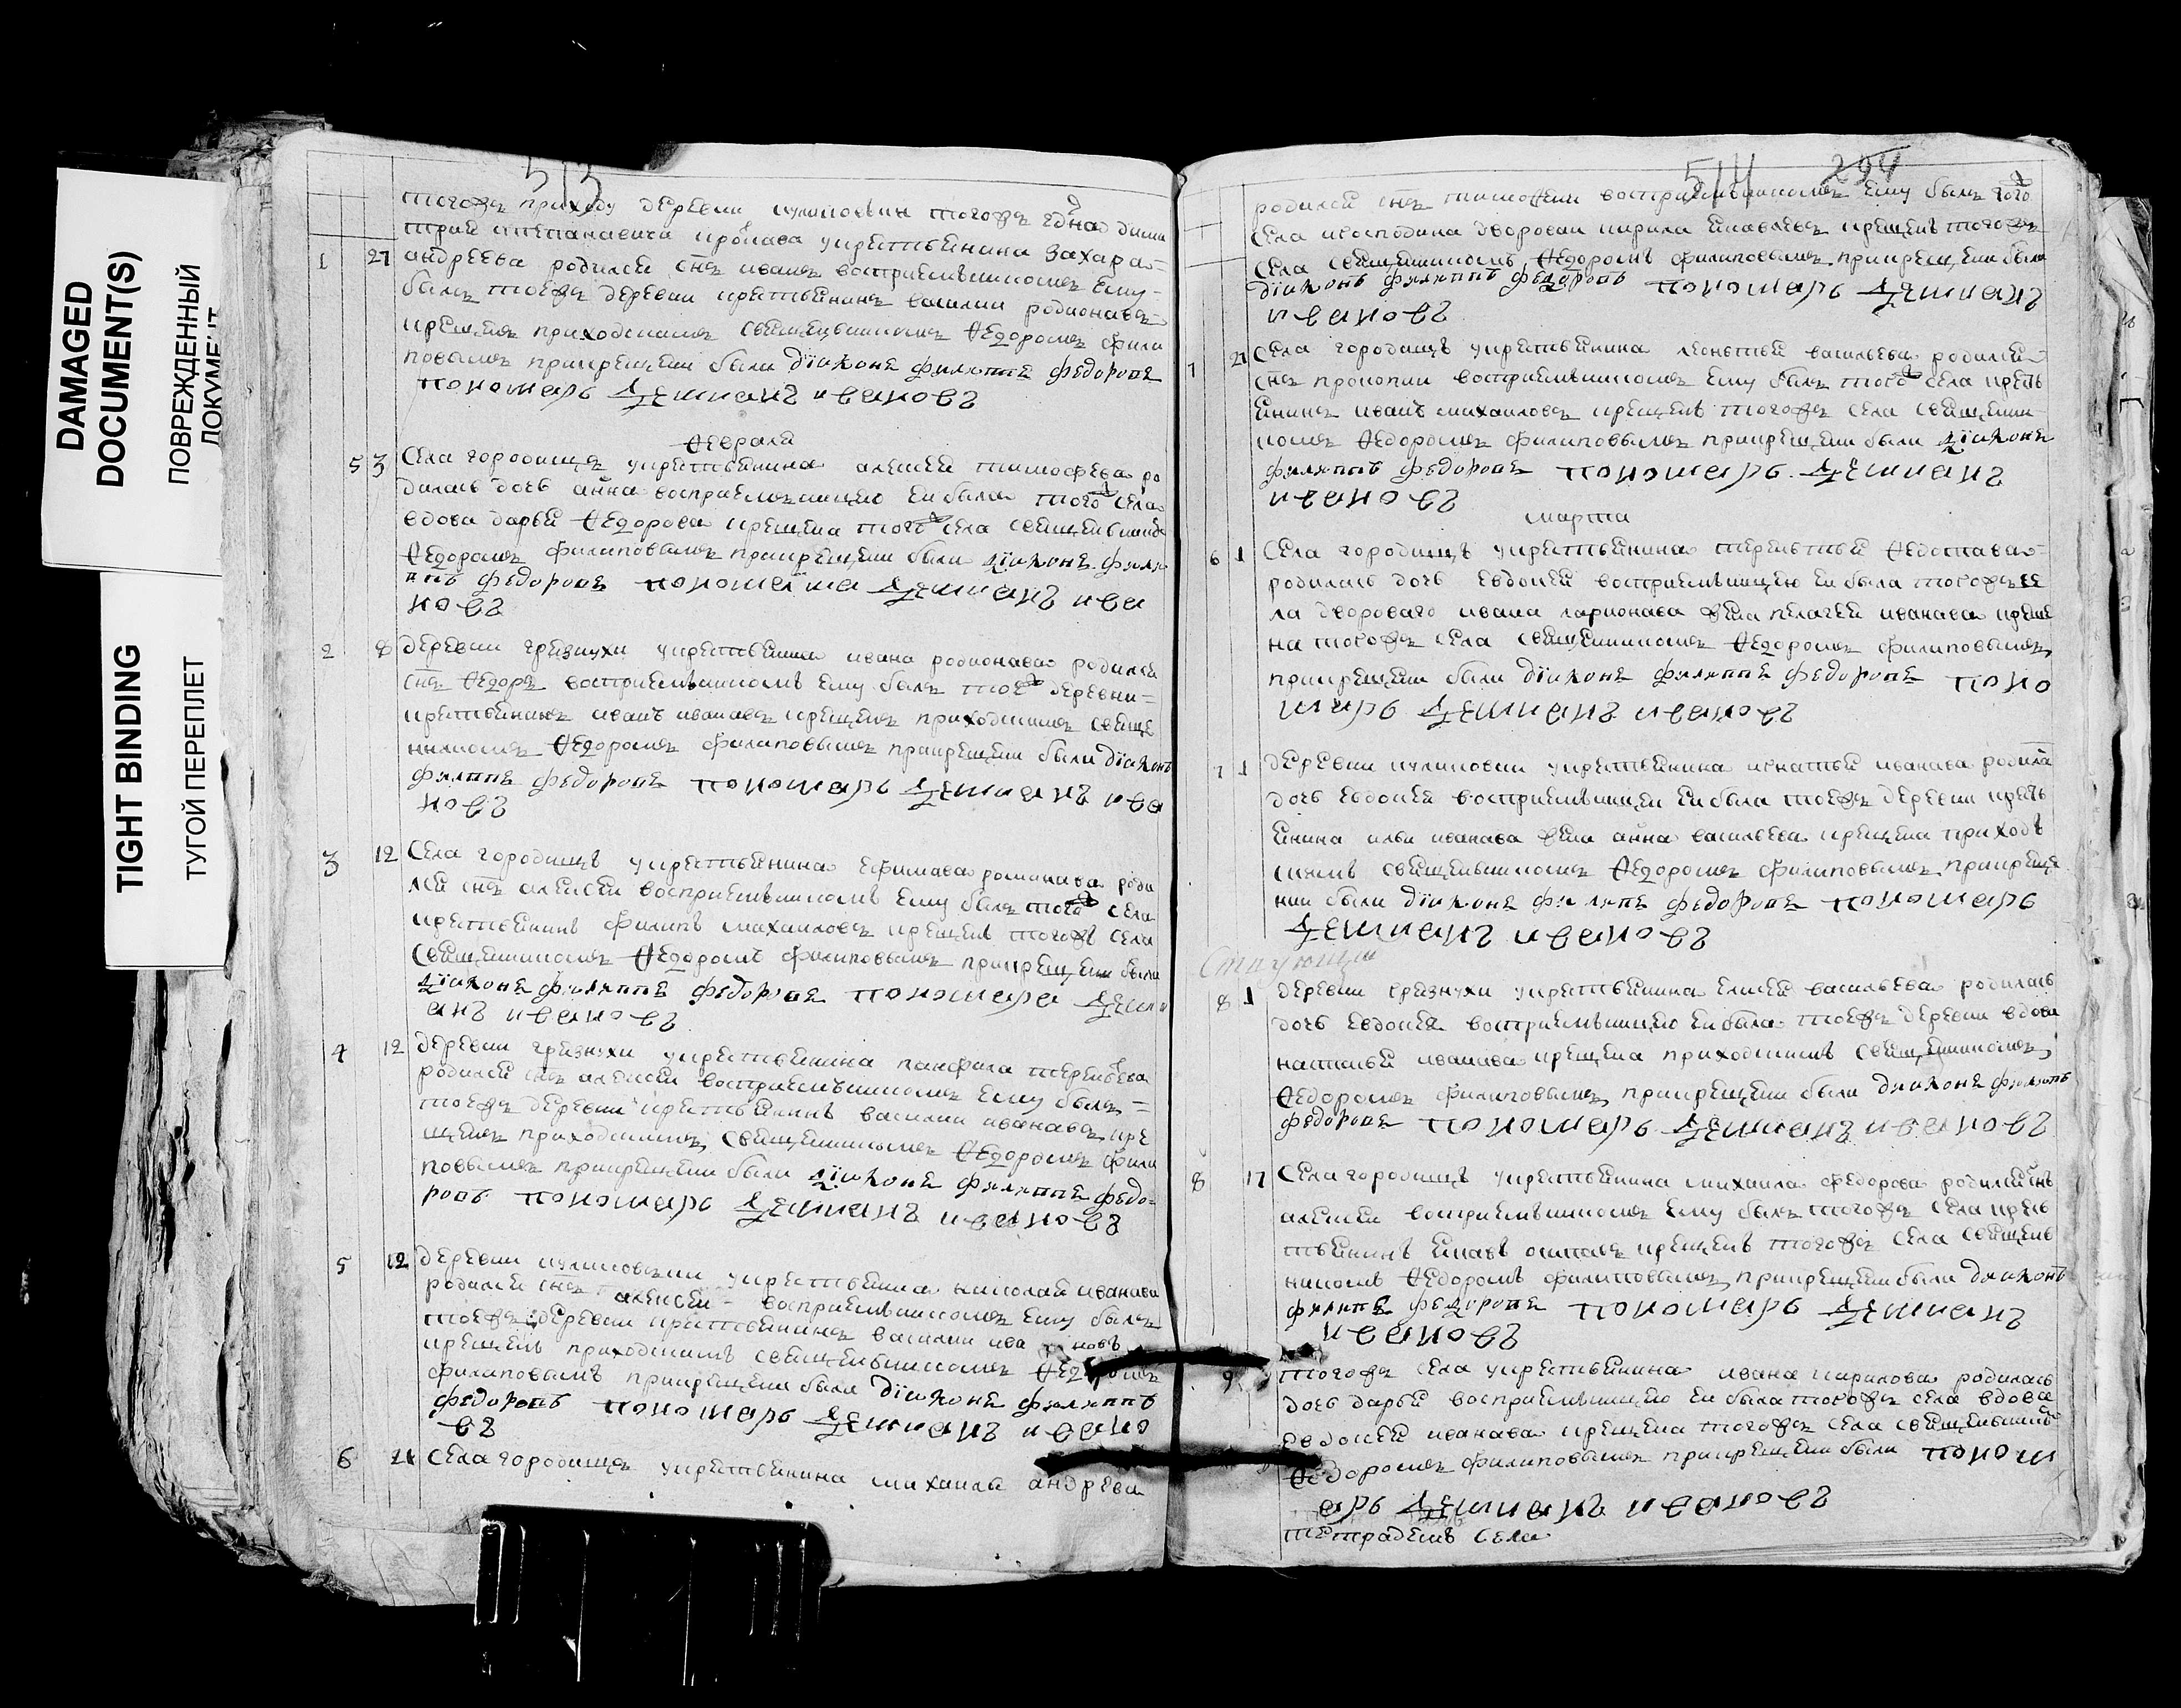 DAMAGED
DOCUMENT(S)
ПОВРЕЖДЕННЫЙ
ДОКУМЕНТ
TIGHT BINDING
ТУГОЙ ПЕРЕПЛЕТ
513
тогожъ приходу деревни тогожъ
крестьянина захара
1 27 андреева родился снъ иванъ восприемьником ему
былъ тоежъ деревни крестьянинъ василии родионавъ
крещенъ приходскимъ священьником ѳедоромъ фили
повымъ прикрещении были діаконъ филиппъ федоровъ
пономарь демианъ ивановъ
ѳевраля
5 3 Села городищъ укрестьянина алексея тимофеева ро
дилась дочь анна восприемьницею еи была того села
вдова дарья ѳедорова крещена того села священьником
ѳедоромъ филиповымъ прикрещении были діаконъ фили
ппъ федоровъ пономарь демианъ ива
новъ
2 8 деревни грязнухи укрестьянина ивана родионава родился
снъ ѳедоръ восприемьником ему былъ тое деревни
крестьянинъ иванъ иванавъ крещенъ приходскимъ свяще
нникомъ ѳедоромъ филиповымъ прикрещении были діаконъ
филиппъ федоровъ пономарь демианъ ива
новъ
3 12 Села городищъ укрестьянина ефимава романава роди
лся снъ алексеи восприемьником ему былъ того села
крестьянинъ филипъ михаиловъ крещенъ тогожъ села
священникомъ ѳедоромъ филиповымъ прикрещении были
діаконъ филиппъ федоровъ пономарь деми
анъ ивановъ
4 12 деревни грязнухи укрестьянина панфила терентьева
родился снъ алексеи восприемьником ему былъ
тоежъ деревни крестьянинъ василии иванавъ кре
щенъ приходскимъ священникомъ ѳедоромъ фили
повымъ прикрещении были діаконъ филиппъ федо
ровъ пономарь демианъ ивановъ
5 12 деревни укрестьянина николая иванава
родился снъ алексеи восприемьником ему былъ
тоежъ деревни крестьянинъ василии ива новъ
крещенъ приходскимъ священьником ѳедоромъ
филиповымъ прикрещении были діаконъ филиппъ
федоровъ пономарь демианъ ивано
въ
6 Села городищъ укрестьянина михаила андреева
514 294
родился снъ тимоѳеи восприемьником ему былъ того
села господина дворовои кирила крещенъ тогожъ
села священником ѳедоромъ филиповымъ прикрещении были
діаконъ филиппъ федоровъ пономарь демианъ
ивановъ
7 21 Села городищъ укрестьянина леонътья васильева родился
снъ прокопии восприемьником ему былъ того села кресть
янинъ иванъ михаиловъ крещенъ тогожъ села священни
комъ ѳедоромъ филиповымъ прикрещении были діаконъ
филиппъ федоровъ пономарь демианъ
ивановъ
марта
6 1 Села городищъ укрестьянина терентья
родилась дочь евдокея восприемьницею еи была тогожъ се
ла двороваго ивана ларионава жена пелагея иванава креще
на тогожъ села священникомъ ѳедоромъ филиповымъ
прикрещении были діаконъ филиппъ федоровъ поно
марь демианъ ивановъ
7 1 деревни укрестьянина игнатья иванава родила
дочь евдокея восприемьницеи еи была тоежъ деревни кресть
янина ильи иванава жена анна васильева крещена приход
скимъ священьникомъ ѳедоромъ филиповымъ прикреще
нии были діаконъ филипъ федоровъ пономарь
демианъ ивановъ
8 1 деревни грязнухи укрестьянина елисея васильева родилась
дочь евдокея восприемьницею еи была тоежъ деревни вдова
наталья иванава крещена приходскимъ священникомъ
ѳедоромъ филиповымъ прикрещении были диаконъ филиппъ
федоровъ пономарь демианъ ивановъ
8 17 Села городищъ укрестьянина михаила федорова родился снъ
алексеи восприемьником ему былъ тогожъ села кресь
тьянинъ крещенъ тогожъ села священь
никомъ ѳедоромъ филиповымъ прикрещении были диаконъ
филипъ федоровъ пономарь демианъ
ивановъ
9 тогожъ села укрестьянина ивана кирилова родилась
дочь дарья восприемьницею еи была тогожъ села вдова
евдокея иванава крещена тогожъ села священьником
ѳедоромъ филиповымъ прикрещении были поном
арь демианъ ивановъ
села